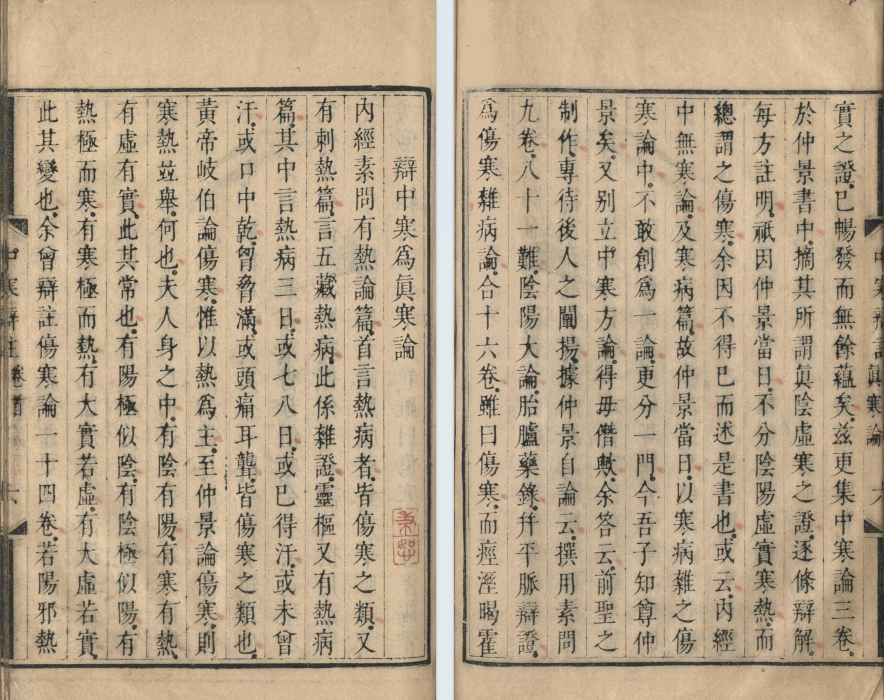 辯中寒爲眞寒論
內經素問有熱論篇首言熱病者皆傷寒之類又
有刺熱篇言五藏熱病此係雜證靈樞又有熱病
篇其中言熱病三日或七八日或已得汗或未曾
汗或口中乾胷脅滿或頭痛耳聾皆傷寒之類也
黃帝岐伯論傷寒惟以熱爲主至仲景論傷寒則
寒熱竝舉何也夫人身之中有陰有陽有寒有熱
有虛有實此其常也有陽極似陰有陰極似陽有
熱極而寒有寒極而熱有大實若虛有大虛若實
此其變也余曾辯註傷寒論一十四卷若陽邪熱
中寒辯註卷首 六
實之證已暢發而無餘蘊矣茲更集中寒論三卷
於仲景書中摘其所謂眞陰虛寒之證逐條辯解
每方註明祇因仲景當日不分陰陽虛實寒熱而
總謂之傷寒余因不得已而述是書也或云內經
中無寒論及寒病篇故仲景當日以寒病雜之傷
寒論中不敢創爲一論更分一門今吾子知尊仲
景矣又别立中寒方論得毋僭歟余答云前聖之
制作專待後人之闡揚據仲景自論云撰用素問
九卷八十一難陰陽大論胎臚藥錄幷平脈辯證
爲傷寒雜病論合十六卷雖曰傷寒而痙溼暍霍
中寒辯註眞寒論 六